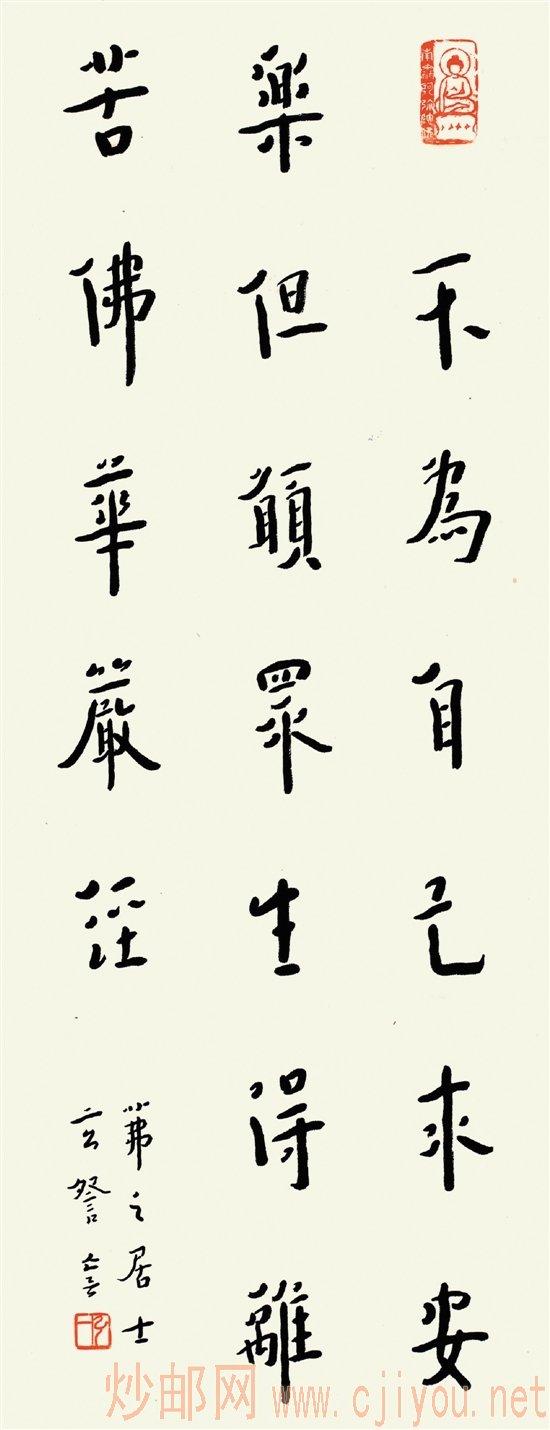 不為自己求安
樂但願眾生得離
苦佛華嚴經
茀之居士
玄詧書
炒邮网 www.cjiyou.net